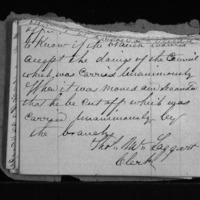 to know if the branch would
accept the doings of the Council
which was carried unanimously
When it was moved and Seconded
that he be cut off which was
carried unanimously by
the branch
Thos McTaggart
Clerk